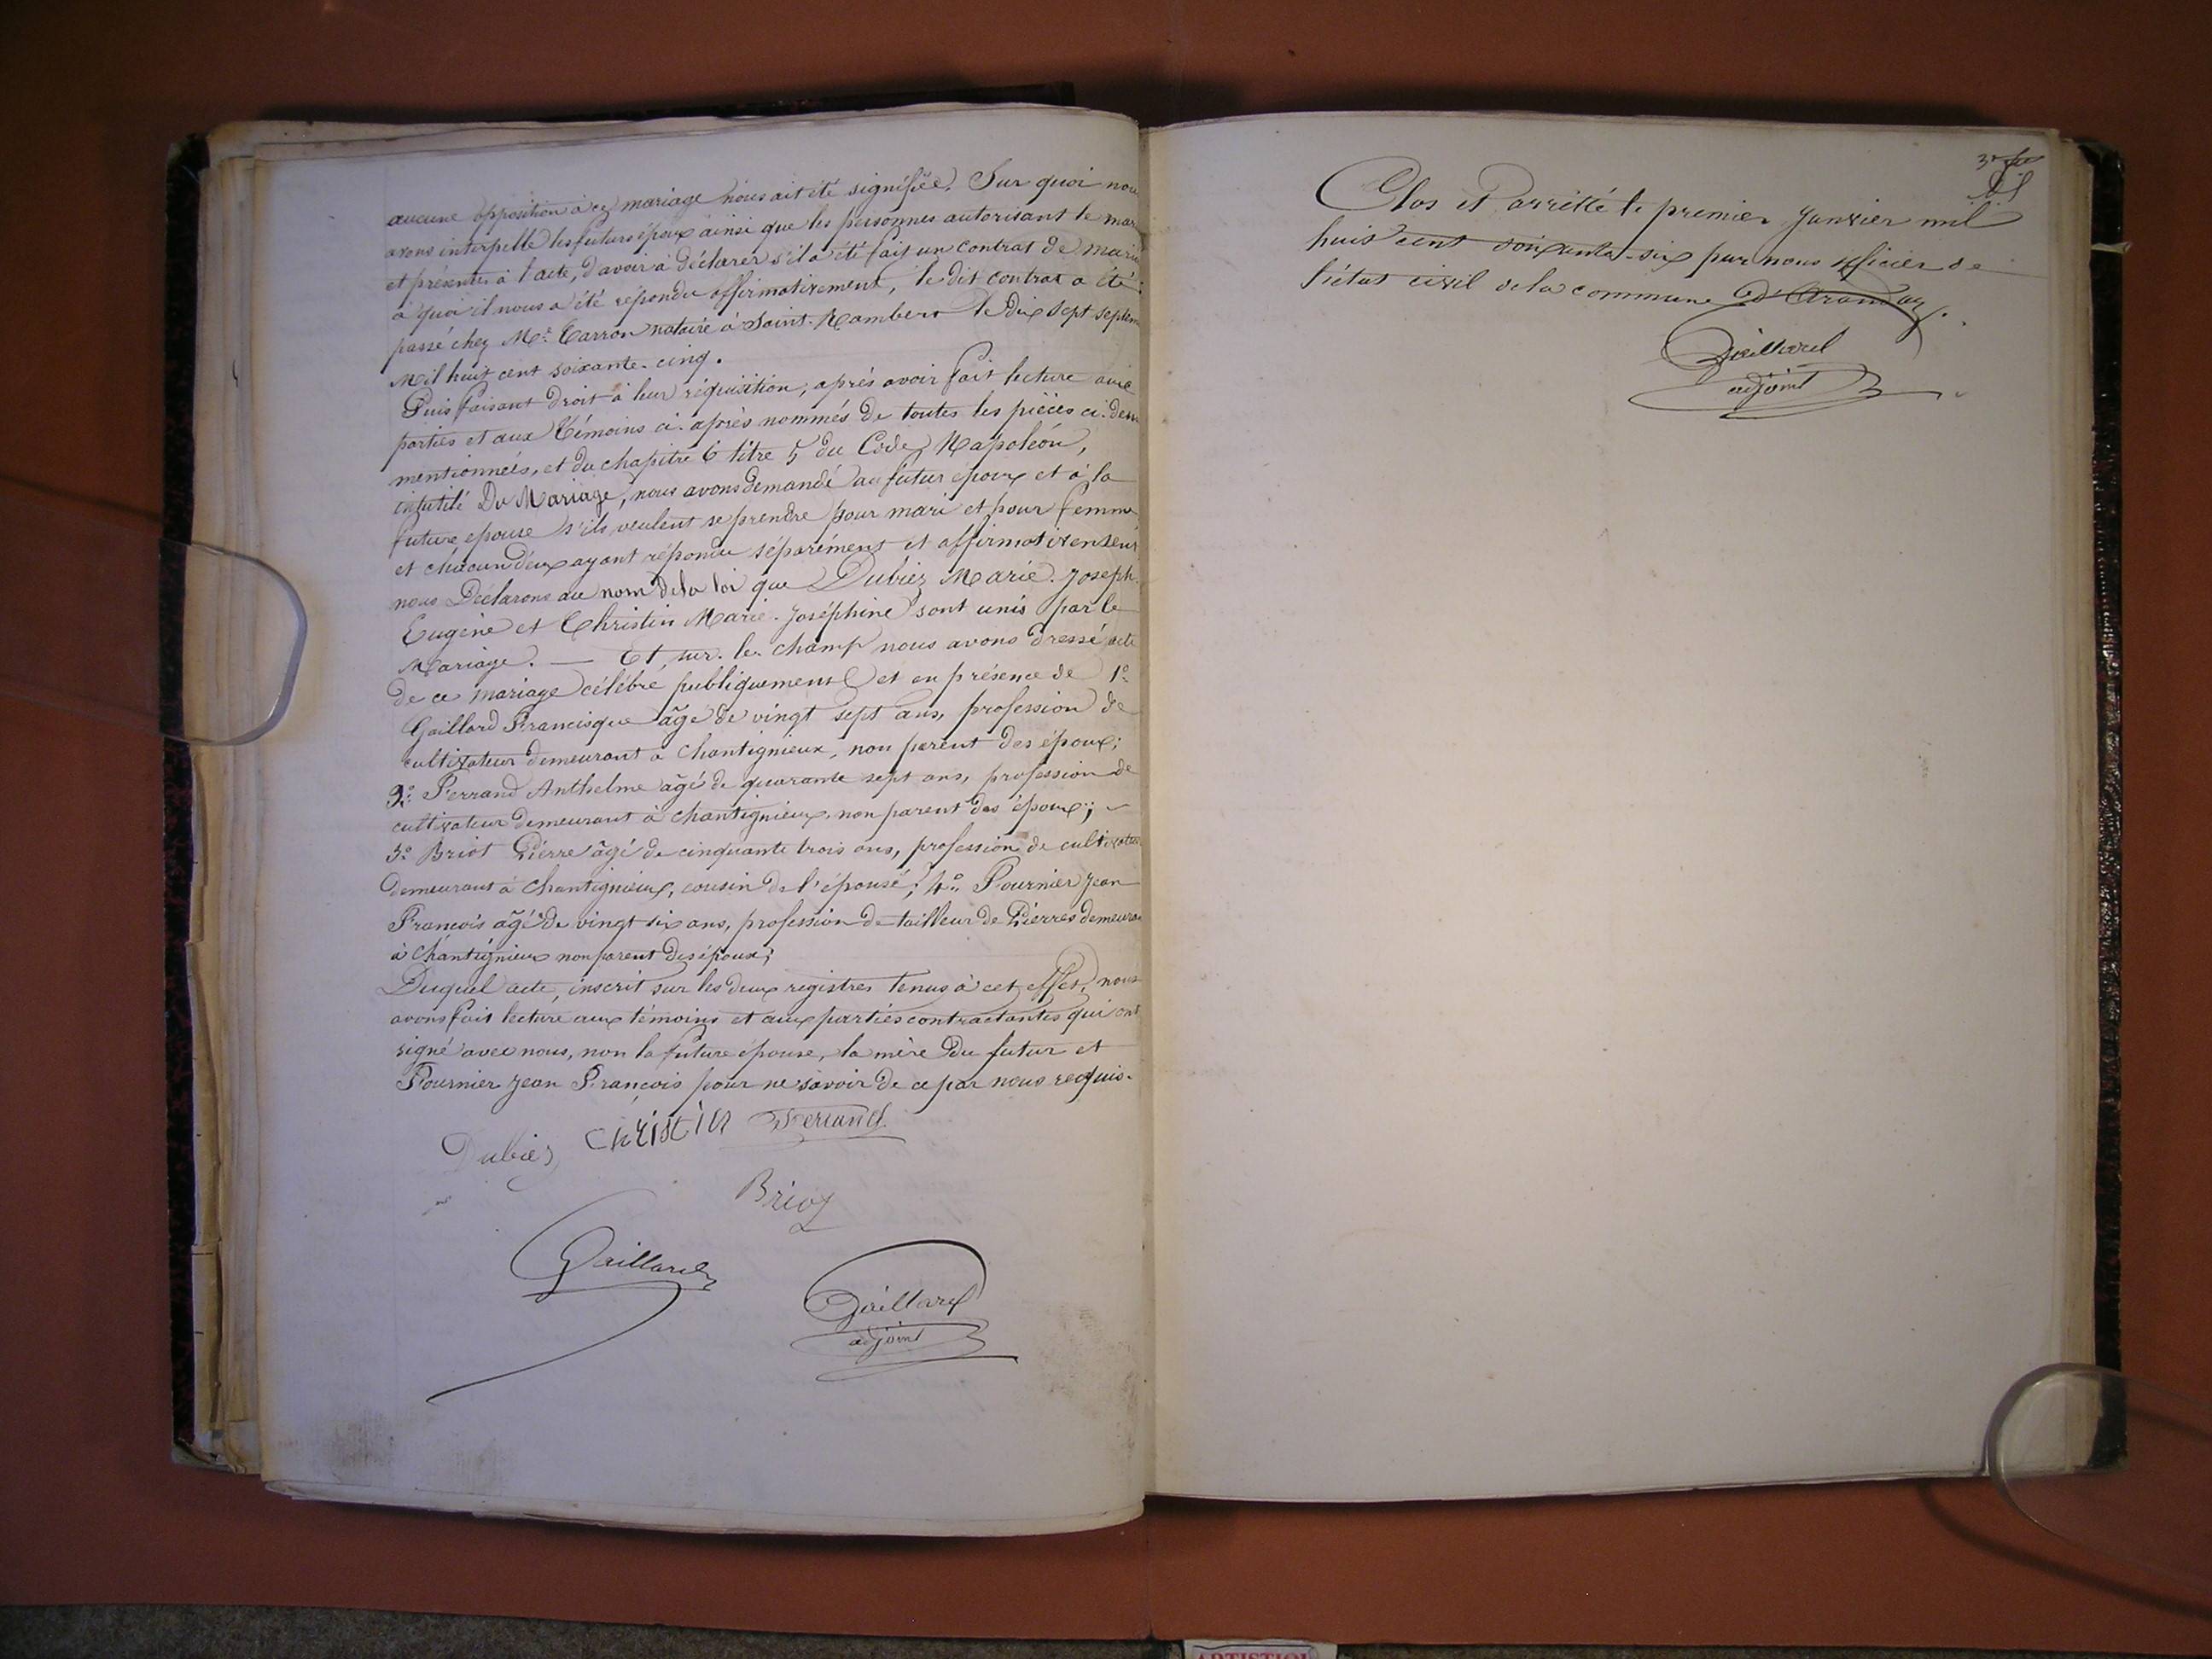 aucune opposition à ce mariage nous ait été signifiée. Sur quoi nous
avons interpellé les futurs époux ainsi que les personnes autorisant le mar
et présentes à l'acte, d'avoir à déclarer s'il a été fait un contrat de maria
à quoi il nous a été répondu affirmativement, le dit contrat a été
passé chez Me. Carron notaire à Saint-Rambert le dix sept septem
Mil huit cent soixante-cinq.
Puis faisant droit à leur réquisition, après avoir fait lecture aux
parties et aux témoins ci-après nommés de toutes les pièces ci-dess
mentionnées, et du chapitre 6 titre 5 du Code Napoléon,
intutilé Du Mariage, nous avons demandé au futur époux et à la
future epouse s'ils veulent se prendre pour mari et pour femme,
et chacun d'eux ayant répondu séparément et affirmativement
nous Déclarons au nom de la loi que Dubiez Marie-Joseph-
Eugène et Christin Marie-Joséphine sont unis par le
Mariage. — Et, sur-le-champ nous avons dressé acte
de ce mariage célébré publiquement et en présence de 1°
Gaillard Francisque âgé de vingt sept ans, profession de
cultivateur demeurant à Chantignieux, non parent des époux;
2° Ferrand Anthelme âgé de quarante sept ans, profession de
cultivateur demeurant à Chantignieux, non parent des époux;
3° Briot Pierre âgé de cinquante trois ans, profession de cultivateu
demeurant à Chantignieux, cousin de l'épouse; 4° Fournier Jean
François âgé de vingt six ans, profession de tailleur de Pierres demeuran
à Chantignieux non parent des époux;
Duquel acte, inscrit sur les deux registres tenus à cet effet, nous
avons fait lecture aux témoins et aux parties contractantes qui ont
signé avec nous, non la future épouse, la mère du futur et
Fournier Jean François pour ne savoir de ce par nous requis.
Dubiez Christin Ferrand
Brioz
Gaillard
Gaillard
adjoint
Clos et arrêté le premier Janvier mil
huit cent soixante-six par nous officier de
l'état civil de la commune d'Arandaz.
Gaillard
adjoint